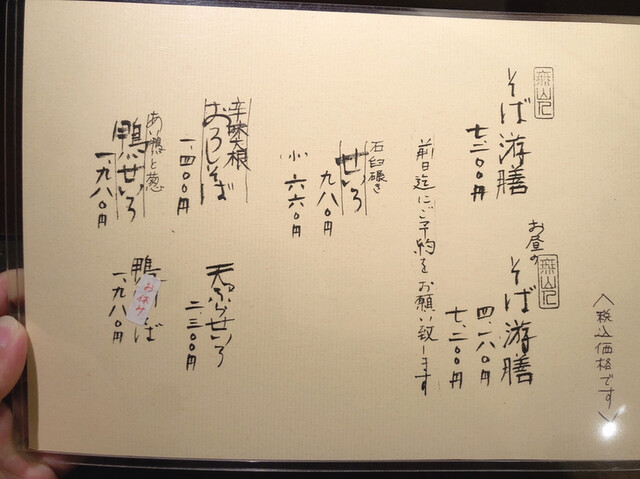 そば游膳
七、二〇〇円
お昼の
そば游膳
四、一八〇円
七、二〇〇円
〈税込価格です〉
前日迄にご予約をお願い致します
石臼碾き
せいろ
九八〇円
小 六六〇円
辛味大根
おろしそば
一、四〇〇円
天ぷらせいろ
二、三〇〇円
あい鴨と葱
鴨せいろ
一、九八〇円
鴨
ば
お休み
一、九八〇円